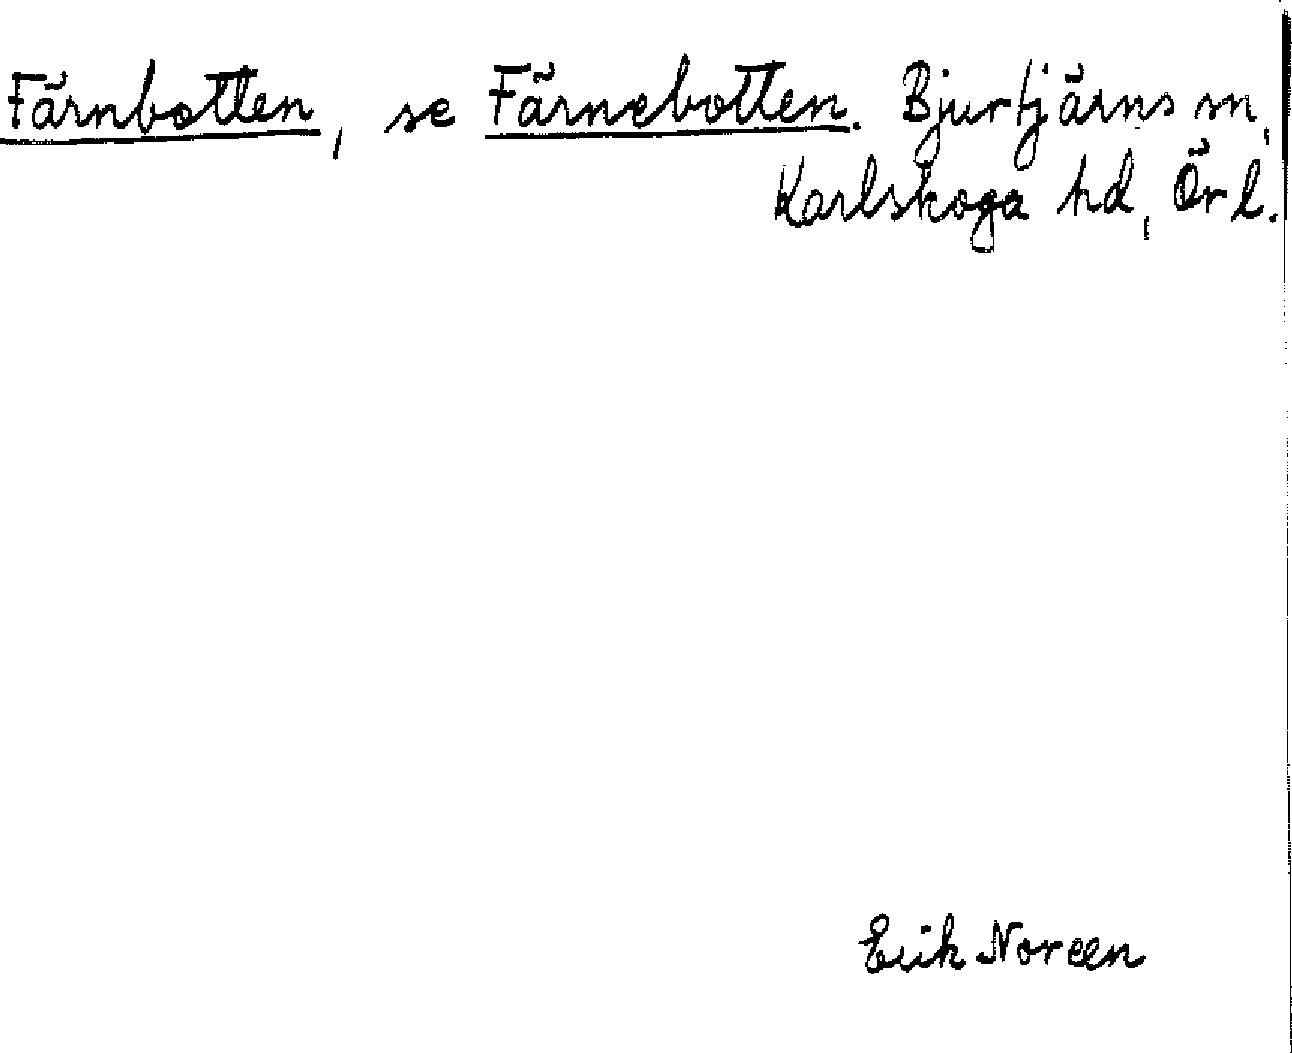 Färnbotten, se Färnebotten. Bjurtjärns sn,
Karlskoga hd, Ör l.
Erik Noreen